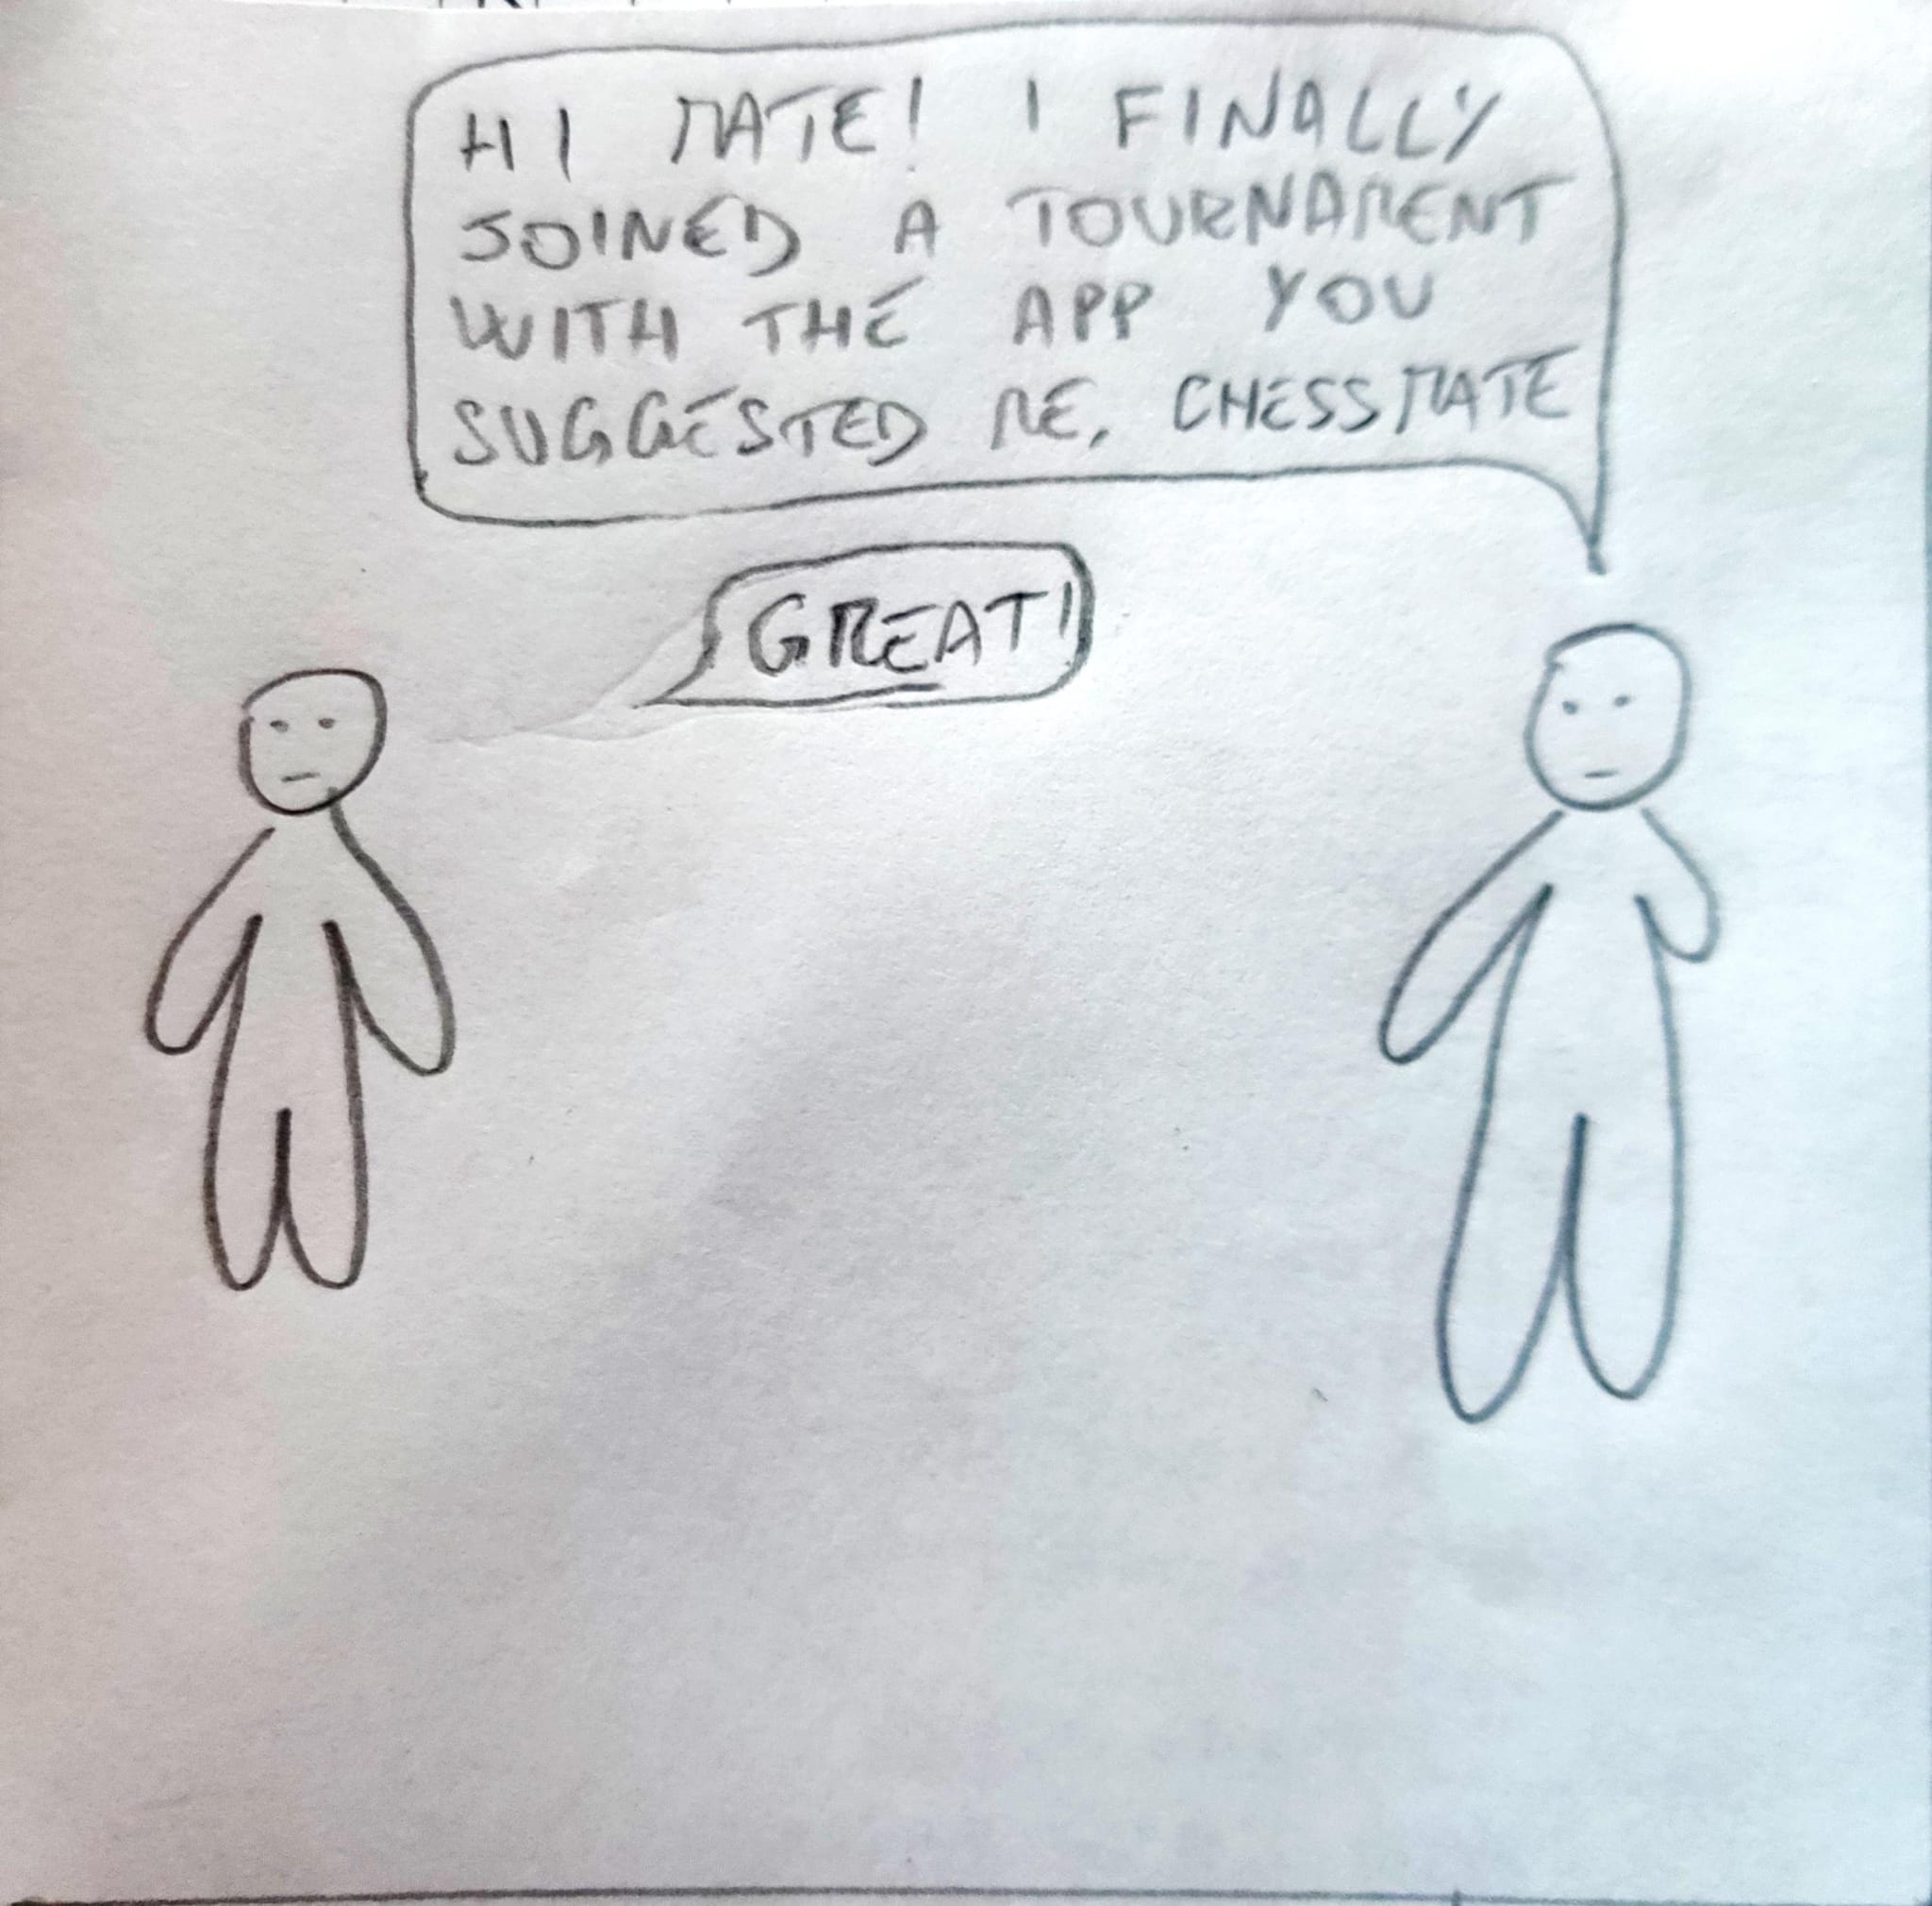 HI MATE! I FINALLY
JOINED A TOURNAMENT
WITH THE APP YOU
SUGGESTED ME, CHESSMATE
GREAT!